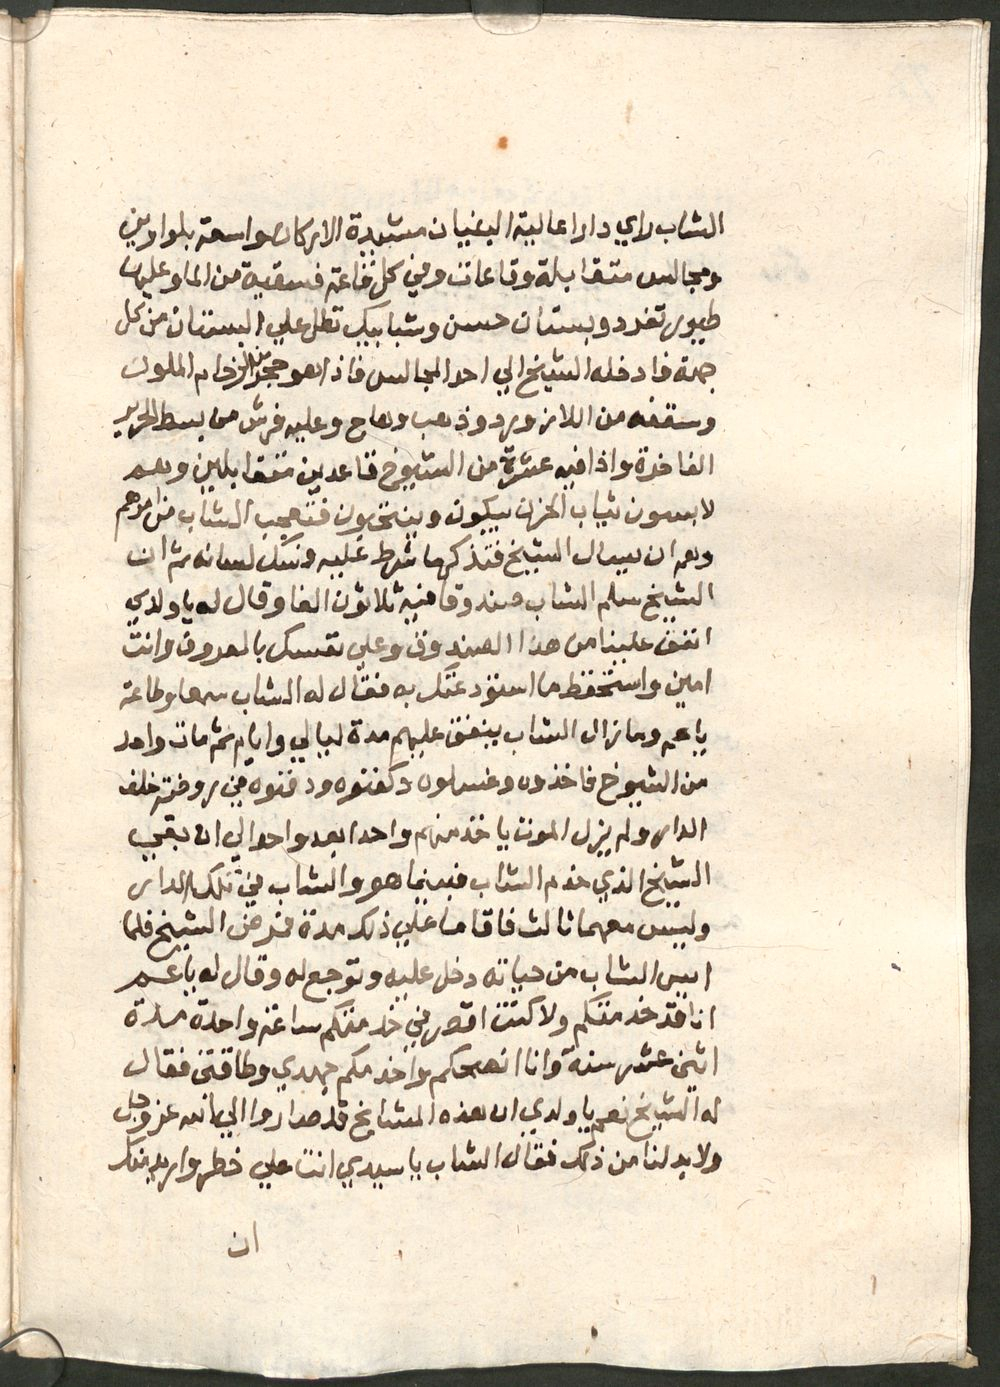 الشاب راي دارا عالية البنيان مشيدة الاركان واسعة بلواوين
ومجالس متقابلة وقاعات وفي كل قاعة فسقية من الما وعليها
طيور تغرد وبستان حسن وشبابيك تطل علي البستان من كل
جهة فادخله الشيخ الي احد المجالس فاذا هو مجزع بالرخام الملون
وسقفه من اللازورد وذهب وهاج وعليه فرش من بسط الحرير
الفاخرة واذا فيه عشرة من الشيوخ قاعدين متقابلين وهم
لابسون ثياب الحزن يبكون وينتحبون فتعجب الشاب من امرهم
وهم ان يسال الشيخ فتذكر ما شرط عليه ومسك لسانه ثم ان
الشيخ سلم الشاب صندوقا فيه ثلاثون الفا وقال له يا ولدي
انفق علينا من هذا الصندوق وعلي نفسك بالمعروف وانت
امين واستحفظ ما استودعتك به فقال له الشاب سمعا وطاعة
يا عم وما زال الشاب ينفق عليهم مدة ليالي وايام ثم مات واحد
من الشيوخ فاخذوه وغسلوه وكفنوه ودفنوه في روضة خلف
الدار ولم يزل الموت ياخذ منهم واحدا بعد واحد الي ان بقي
الشيخ الذي خدم الشاب فبينما هو والشاب في تلك الدار
وليس معهما ثالث فاقاما علي ذلك مدة فمرض الشيخ فلما
ايس الشاب من حياته دخل عليه وتوجع له وقال له يا عم
انا قد خدمتكم ولا كنت اقصر في خدمتكم ساعة واحدة مدة
اثني عشر سنة وانا انصحكم واخدمكم جهدي وطاقتي فقال
له الشيخ نعم يا ولدي ان هذه المشايخ قد صاروا الي الله عز وجل
ولا بد لنا من ذلك فقال الشاب يا سيدي انت علي خطر واريد منك
ان